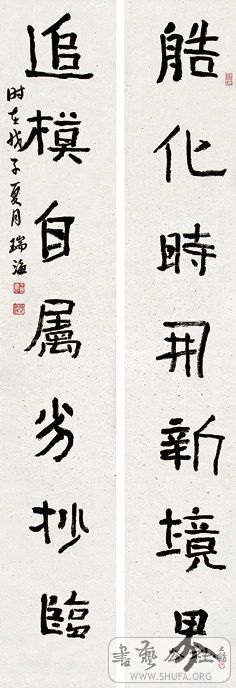 艁化時開新境界
追模自属劣抄臨
时在戊子夏月瑞
書藝公社
WWW.SHUFA.ORG